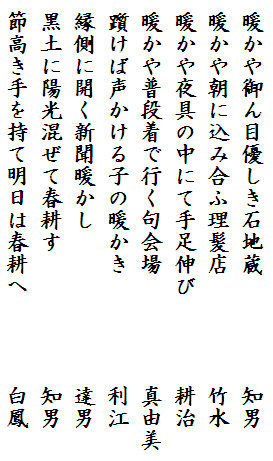 暖かや御ん目優しき石地蔵　知男
暖かや朝に込み合ふ理髪店　竹水
暖かや夜具の中にて手足伸び　耕治
暖かや普段着で行く句会場　真由美
躓けば声かける子の暖かき　利江
縁側に開く新聞暖かし　達男
黒土に陽光混ぜて春耕す　知男
節高き手を持て明日は春耕へ　白鳳